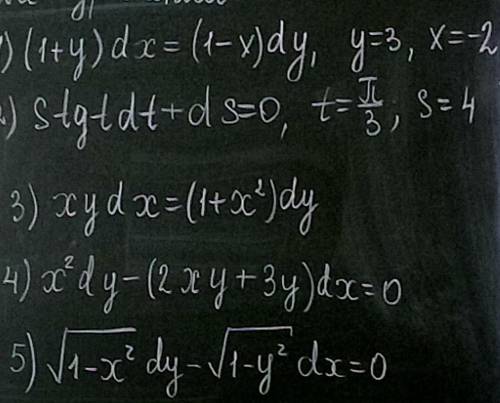 ) (1+y) dx = (1-x)dy, y=3, x=-2
) s tg t dt + ds=0, t=π/3, s=4
3) xy dx = (1+x²)dy
4) x²dy-(2xy+3y)dx=0
5) √(1-x²) dy-√(1-y²) dx=0